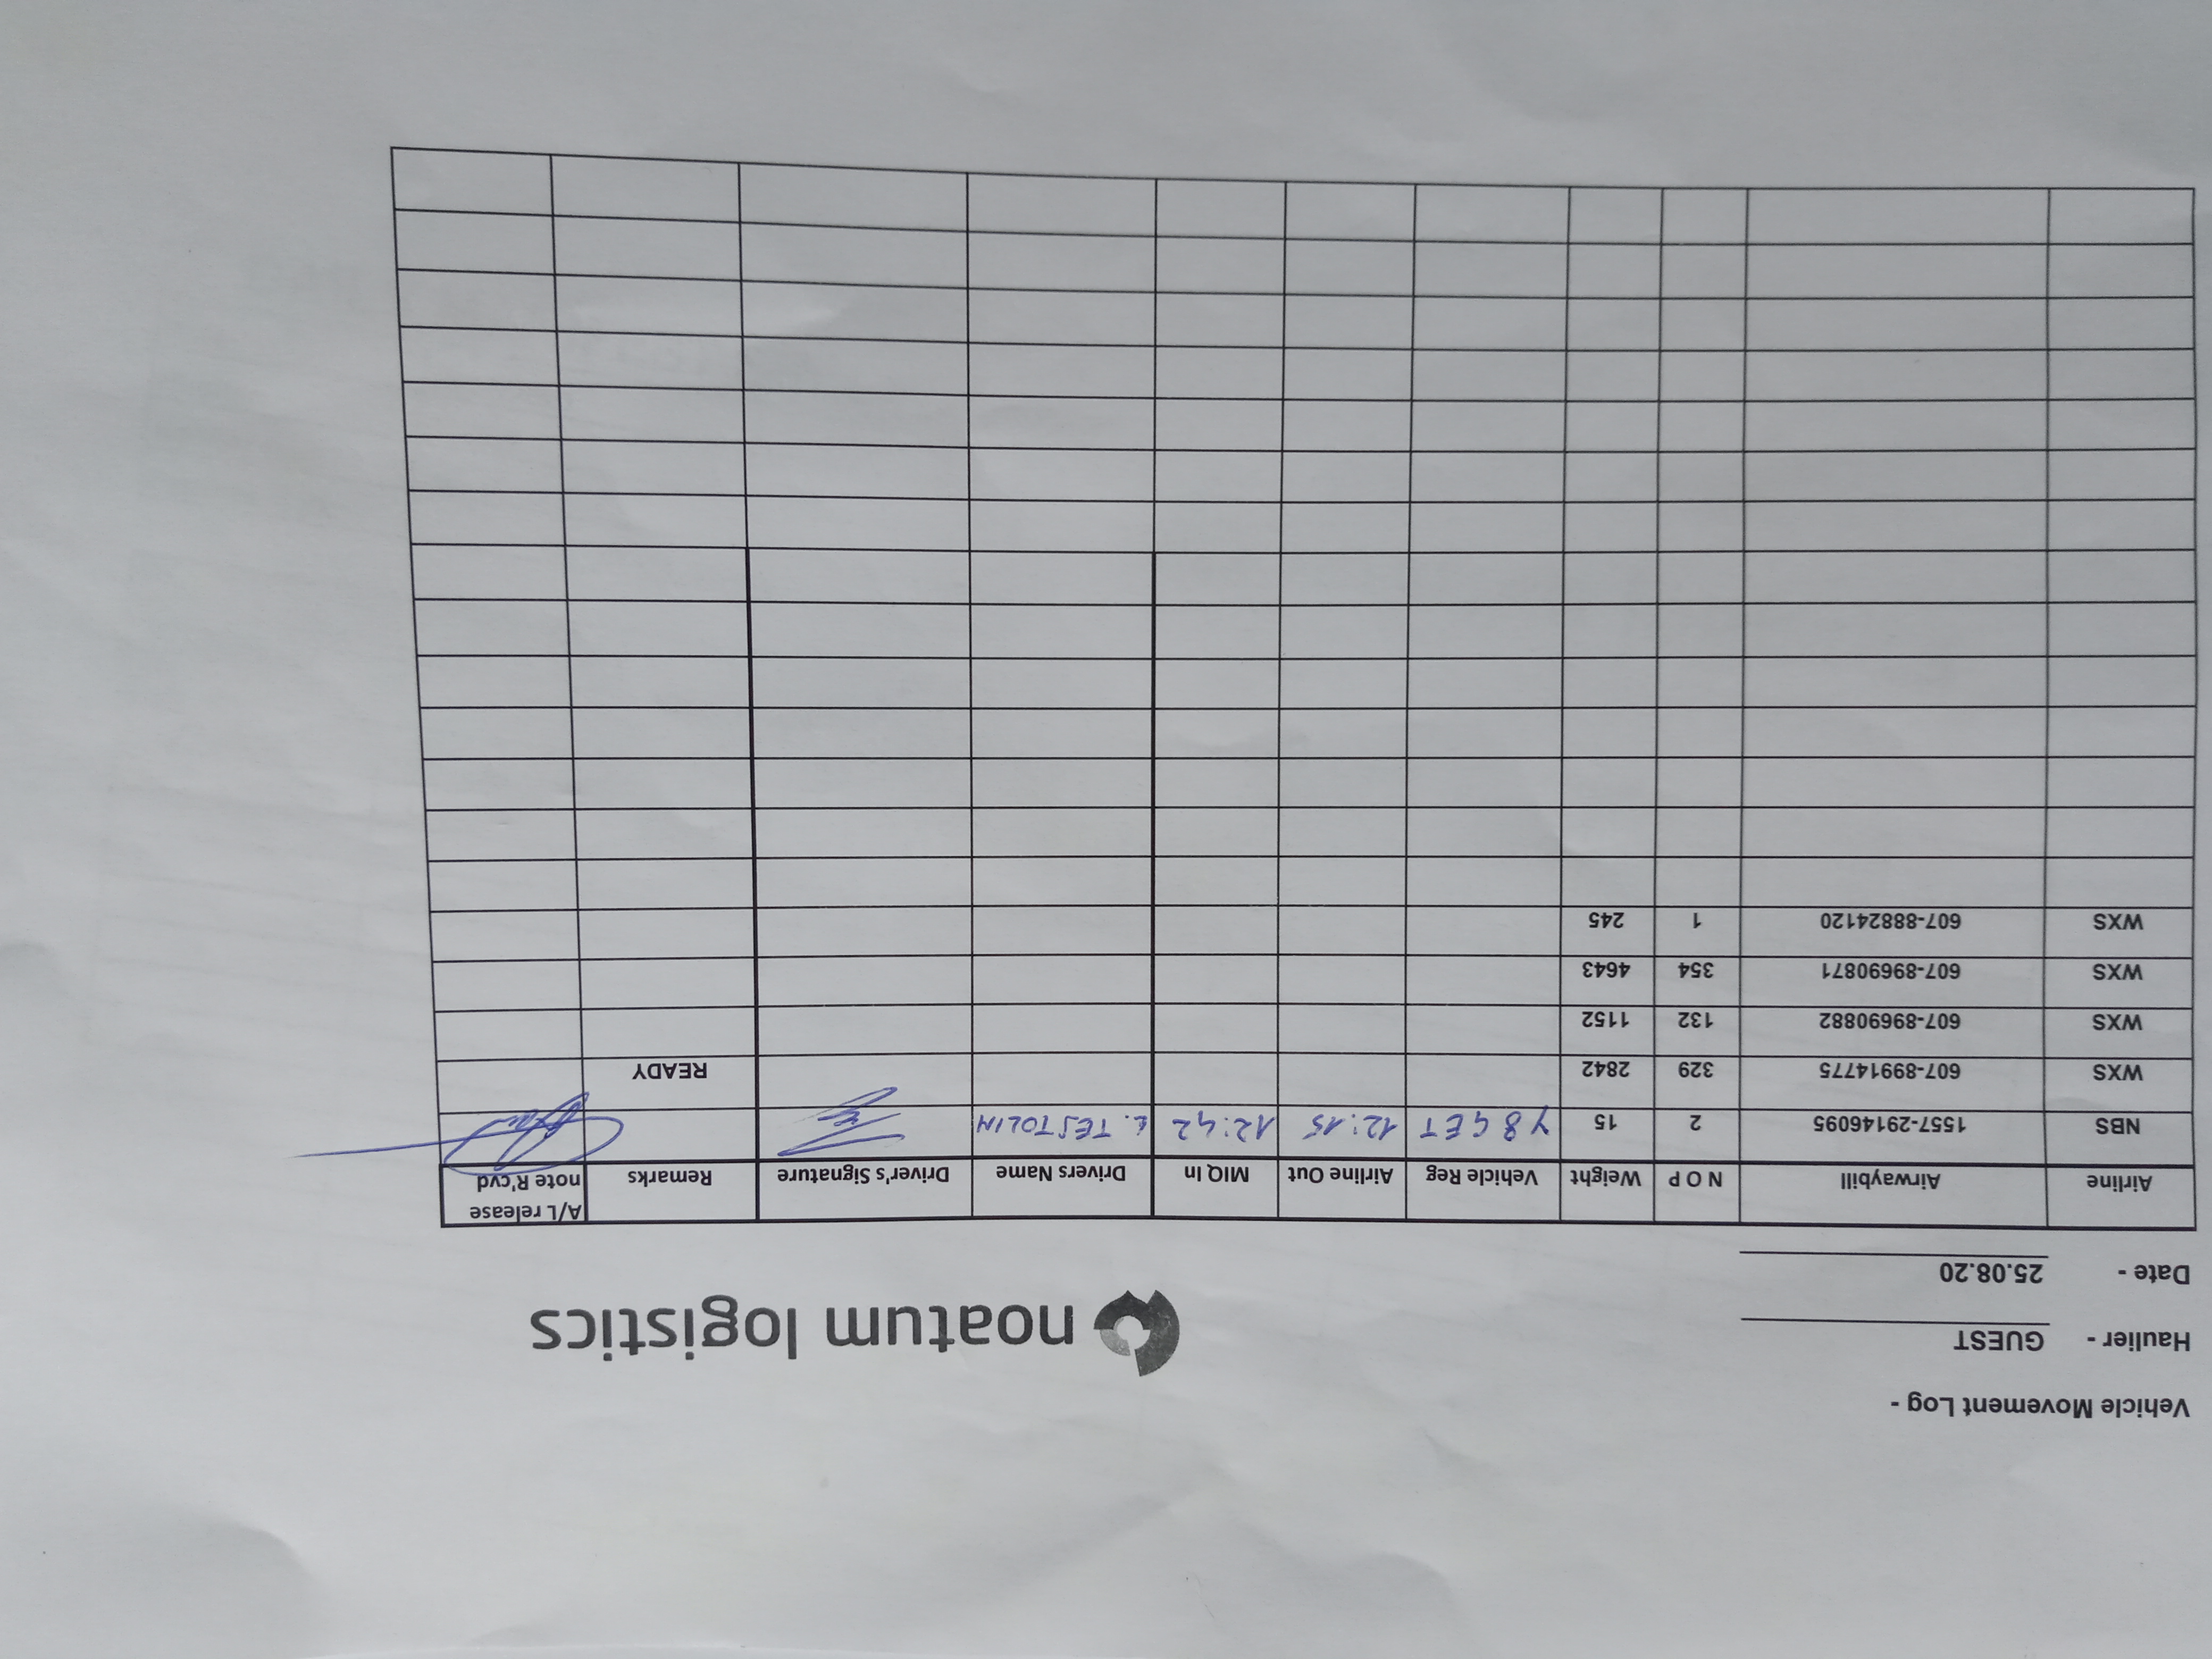 Vehicle Movement Log -
Haulier - GUEST
Date - 25.08.20
noatum logistics
Airline Airwaybill N O P Weight Vehicle Reg Airline Out MIQ In Drivers Name Driver's Signature Remarks A/L release note R'cvd
NBS 1557-29146095 2 15 Y8GET 12:15 12:42 L. TESTOLIN
WXS 607-89914775 329 2842 READY
WXS 607-89690882 132 1152
WXS 607-89690871 354 4643
WXS 607-88824120 1 245